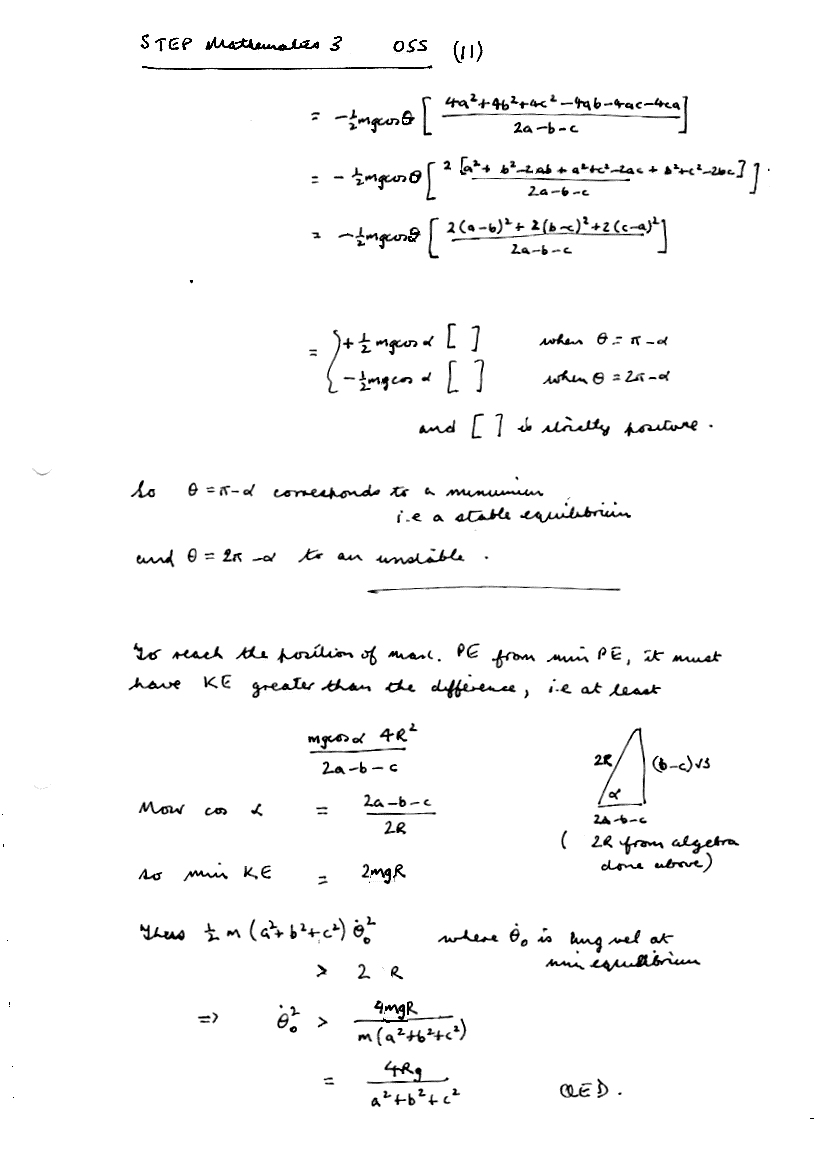 STEP Mathematics 3 OSS (11)
= -½mgcosθ [ (4a²+4b²+4c²-4ab-4ac-4ca) / (2a-b-c) ]
= -½mgcosθ [ 2[a²+b²-2ab+a²+c²-2ac+b²+c²-2bc] / (2a-b-c) ].
= -½mgcosθ [ (2(a-b)²+2(b-c)²+2(c-a)²) / (2a-b-c) ]
= { +½mgcosα [ ] when θ = π-α
-½mgcosα [ ] when θ = 2π-α
and [ ] is strictly positive.
So θ = π-α corresponds to a minimum
i.e a stable equilibrium
and θ = 2π-α to an unstable.
To reach the position of max. PE from min PE, it must
have KE greater than the difference, i.e at least
mgcosα 4R² / (2a-b-c)
2R (b-c)√3
α
2a-b-c
Now cos α = (2a-b-c) / 2R
( 2R from algebra
done above)
so min KE = 2mgR
Thus ½m(a²+b²+c²)θ̇₀² where θ̇₀ is ang vel at
min equilibrium
> 2 R
=> θ̇₀² > 4mgR / m(a²+b²+c²)
= 4Rg / (a²+b²+c²) QED.